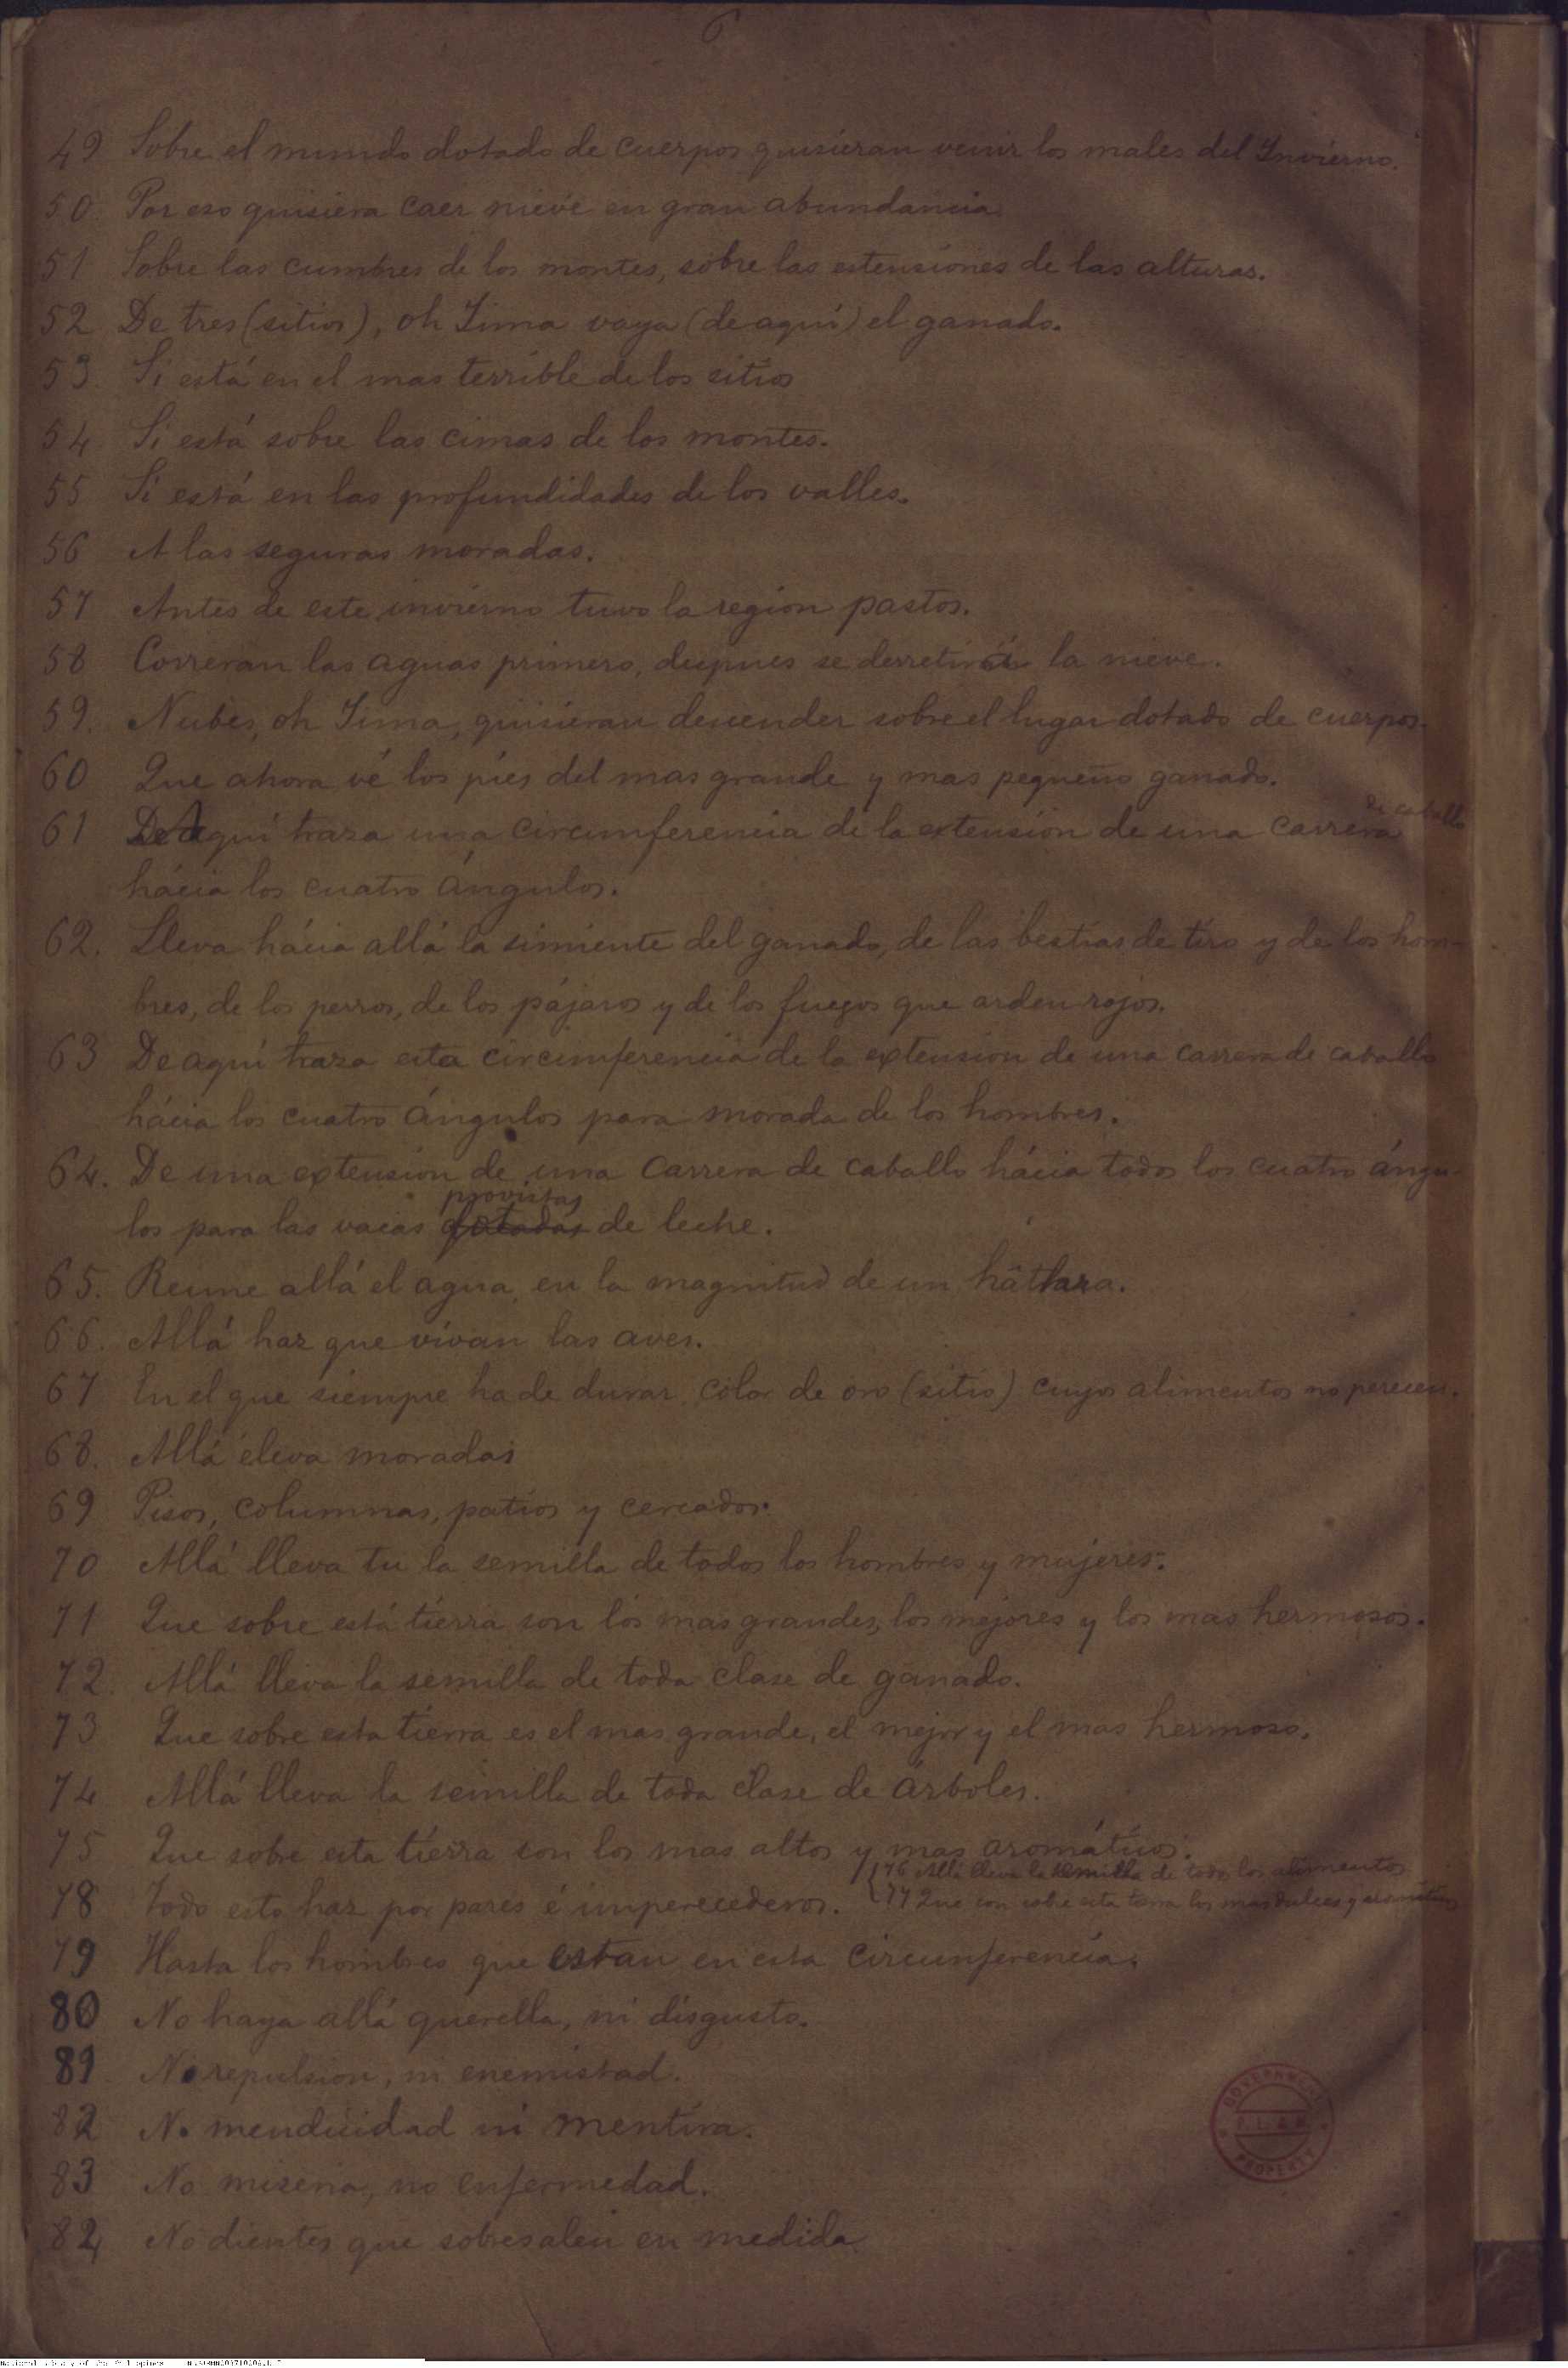 6
49 Sobre el mundo dotado de cuerpos quisieran venir los males del Invierno.
50. Por eso quisiera caer nieve en gran abundancia.
51 Sobre las cumbres de los montes, sobre las estensiones de las alturas.
52 De tres (sitios), oh Yima vaya (de aquí) el ganado.
53. Si está en el mas terrible de los sitios
54. Si está sobre las cimas de los montes.
55 Si está en las profundidades de los valles.
56 A las seguras moradas.
57 Antes de este invierno tuvo la region pastos.
58 Correran las aguas primero, despues se derretirá la nieve.
59. Nubes, oh Yima, quisieran descender sobre el lugar dotado de cuerpos.
60 Que ahora vé los piés del mas grande y mas pequeño ganado.
61 De aquí traza una circumferencia de la extension de una carrera de caballo
hácia los cuatro ángulos.
62. Lleva hácia allá la simiente del ganado, de las bestias de tiro y de los hom-
bres, de los perros, de los pájaros y de los fuegos que arden rojos.
63 De aquí traza esta circumferencia de la extension de una carrera de caballo
hácia los cuatro ángulos para morada de los hombres.
64. De una extension de una carrera de caballo hácia todos los cuatro ángu-
los para las vacas dotadas provistas de leche.
65. Reune allá el agua en la magnitud de un hâthara.
66. Allá haz que vivan las aves.
67 En el que siempre ha de durar color de oro (sitio) cuyos alimentos no perecen.
68. Allá eleva moradas
69 Pisos, columnas, patios y cercados.
70 Allá lleva tu la semilla de todos los hombres y mujeres.
71 Que sobre está tierra son los mas grandes, los mejores y los mas hermosos.
72. Allá lleva la semilla de toda clase de ganado.
73 Que sobre esta tierra es el mas grande, el mejor y el mas hermoso.
74 Allá lleva la semilla de toda clase de árboles.
75 Que sobre esta tierra son los mas altos y mas aromáticos.
76 Allá lleva la semilla de todos los alimentos
77 Que son sobre esta tierra los mas dulces y aromáticos
78 Todo esto haz por pares é imperecederos.
79 Hasta los hombres que estan en esta circunferencia.
80 No haya allá querella, ni disgusto.
81 No repulsion, ni enemistad.
82 No mendicidad ni mentira.
83 No miseria, no enfermedad.
84 No dientes que sobresalen en medida
GOVERNMENT
PROPERTY